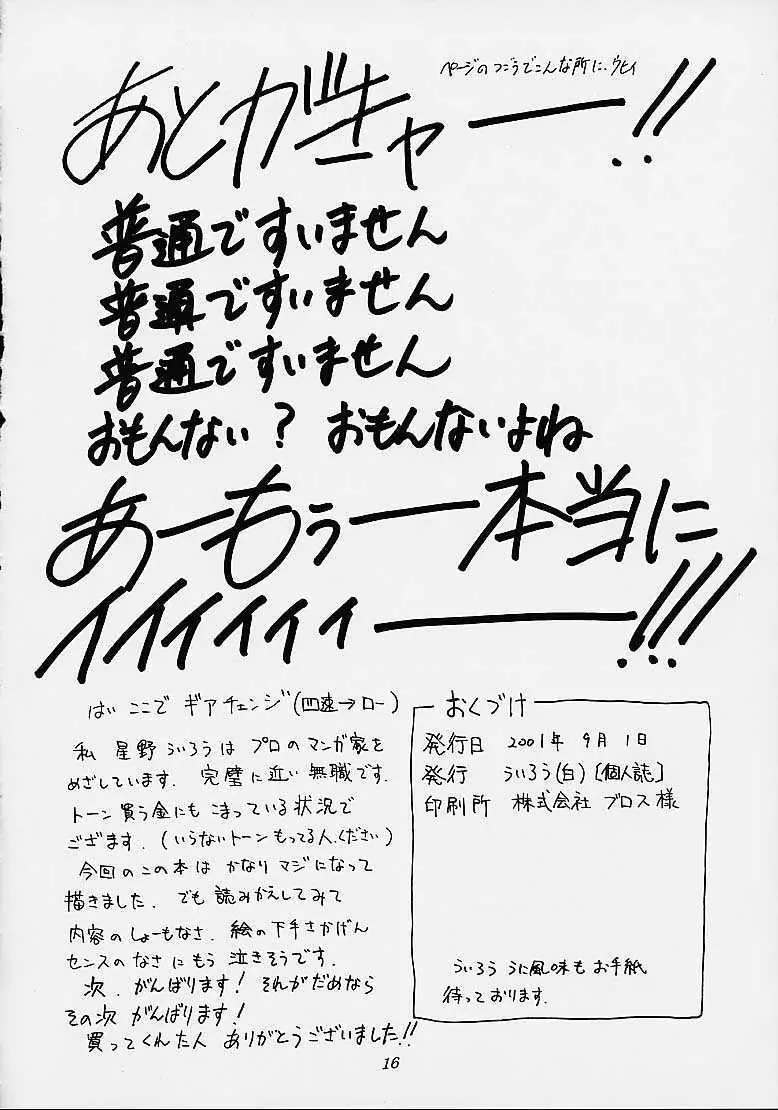 ページのつごうでこんな所に、ウヒィ
あとがキャー!!
普通ですいません
普通ですいません
普通ですいません
おもんない? おもんないよね
あーもぅー本当に
イイィィィィー!!!
はい ここで ギアチェンジ(四速→ロー)
私 星野ういろうは プロのマンガ家を
めざしています. 完璧に近い 無職です.
トーン買う金にも こまっている状況で
ござます. (いらないトーンもってる人、ください)
今回のこの本は かなりマジになって
描きました. でも 読みかえしてみて
内容のしょーもなさ. 絵の下手さかげん
センスのなさ にもう 泣きそうです.
次. がんばります! それがだめなら
その次 がんばります!
買ってくれた人 ありがとうございました!!
おくづけ
発行日 2001年 9月 1日
発行 ういろう(白)[個人誌]
印刷所 株式会社 ブロス様
ういろう うに風味も お手紙
待っております.
16